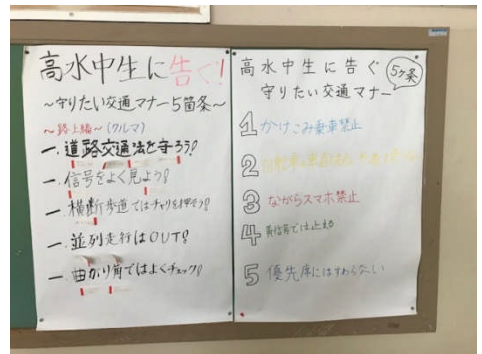 高水中生に告ぐ!
~守りたい交通マナー5箇条~
~路上編~(クルマ)
一.道路交通法を守ろう!
一.信号をよく見よう!
一.横断歩道ではチャリを押そう!
一.並列走行はOUT!
一.曲がり角ではよくチェック!
高水中生に告ぐ
守りたい交通マナー
5ヶ条
1 かけこみ乗車禁止
2
3 ながらスマホ禁止
4 黄信号では止まる
5 優先席にはすわらない